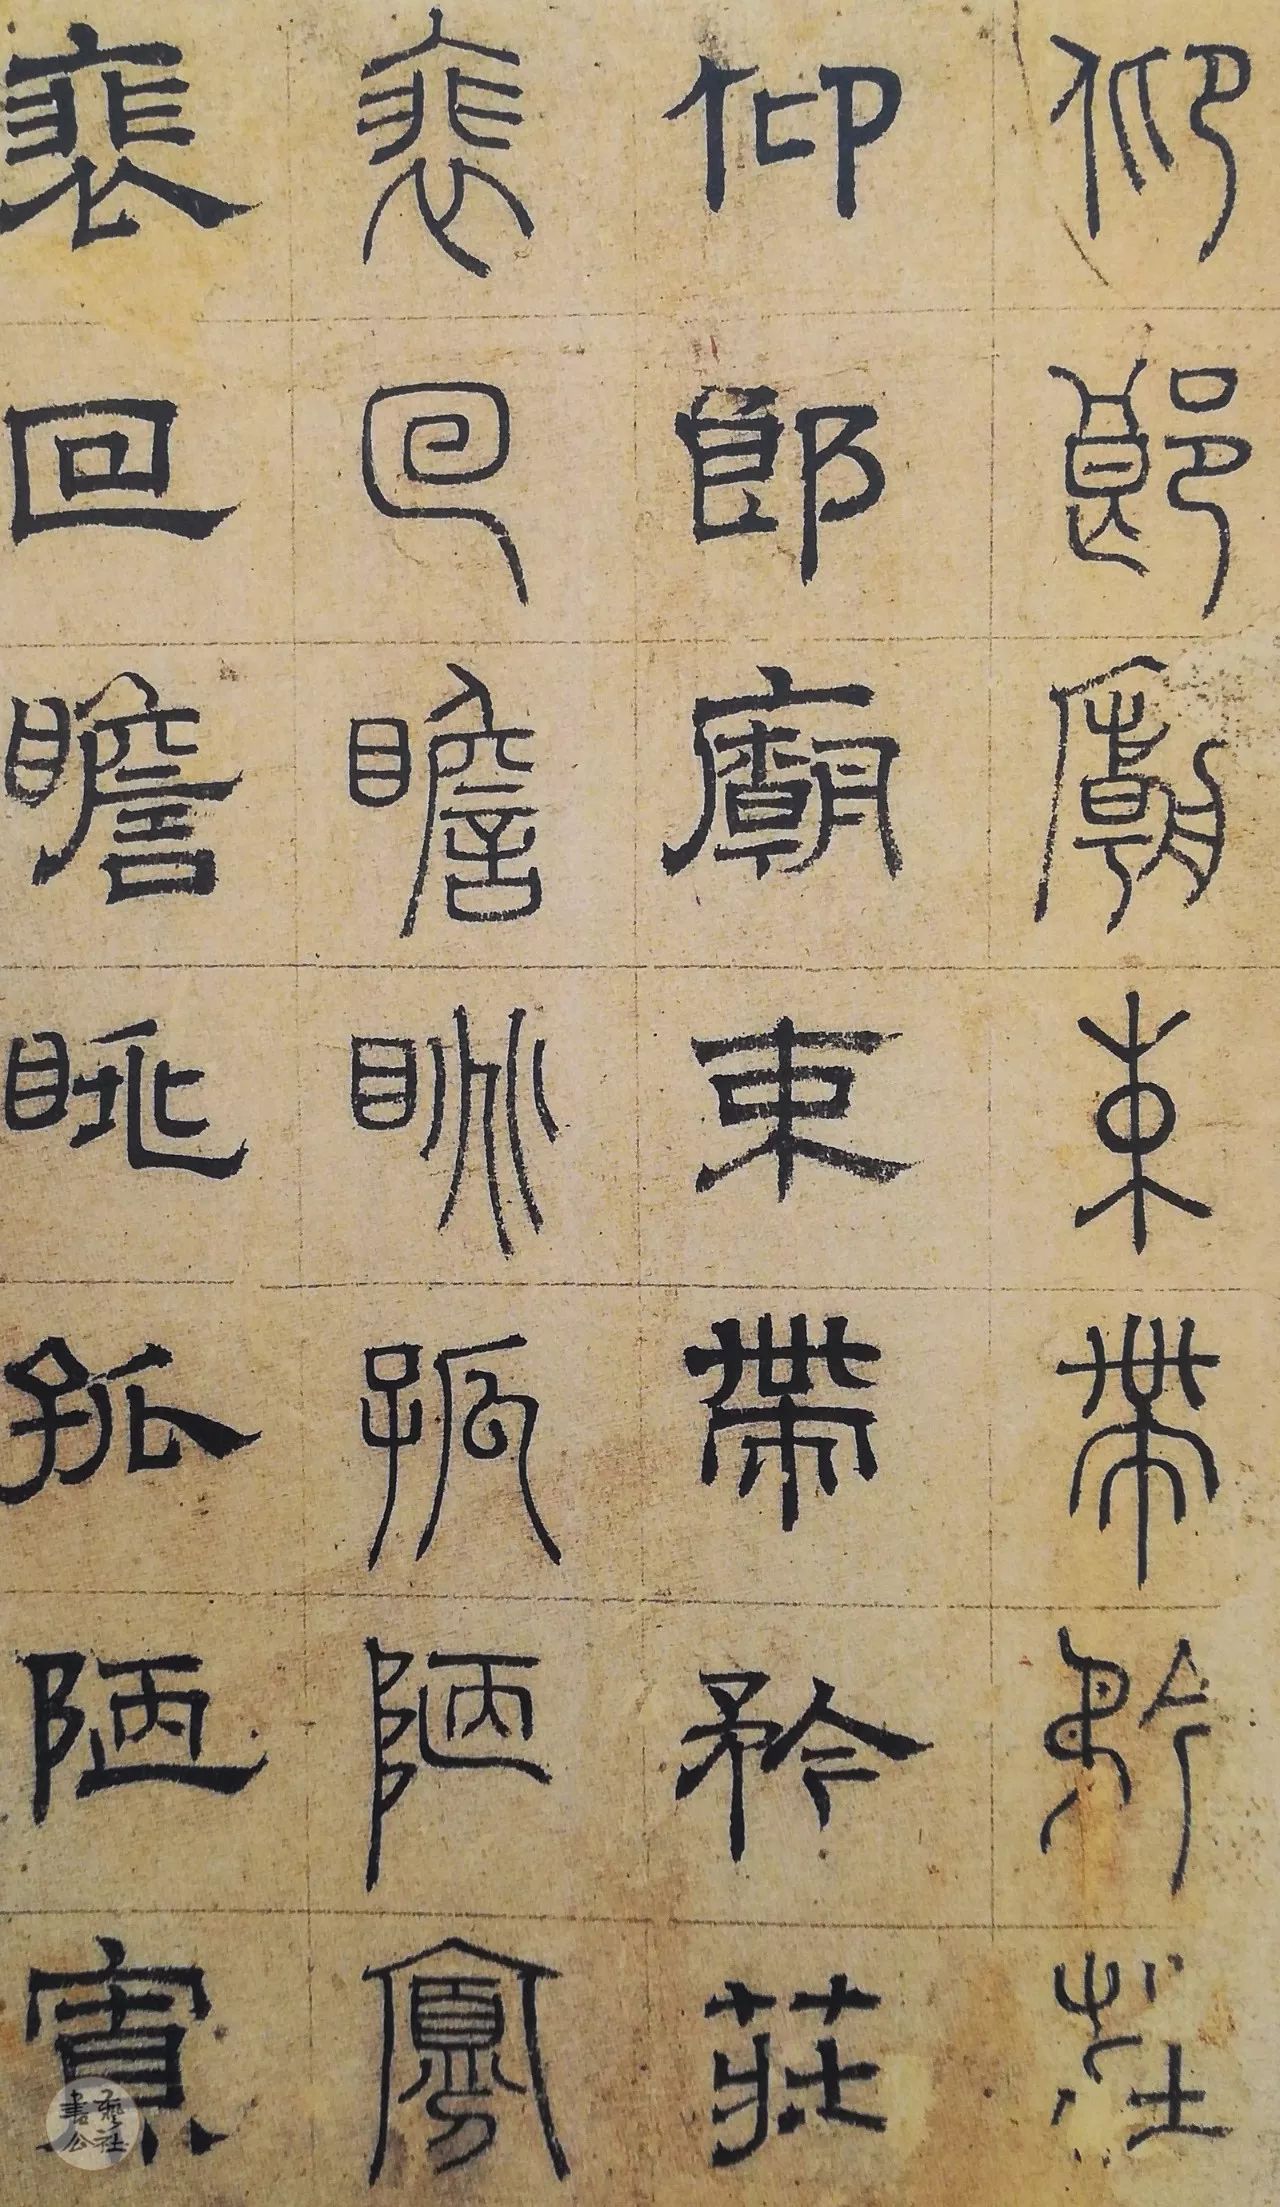 仰郎廟束帶矜莊
仰郎廟束帶矜莊
裵回瞻眺孤陋寡
裵回瞻眺孤陋寡
書藝公社